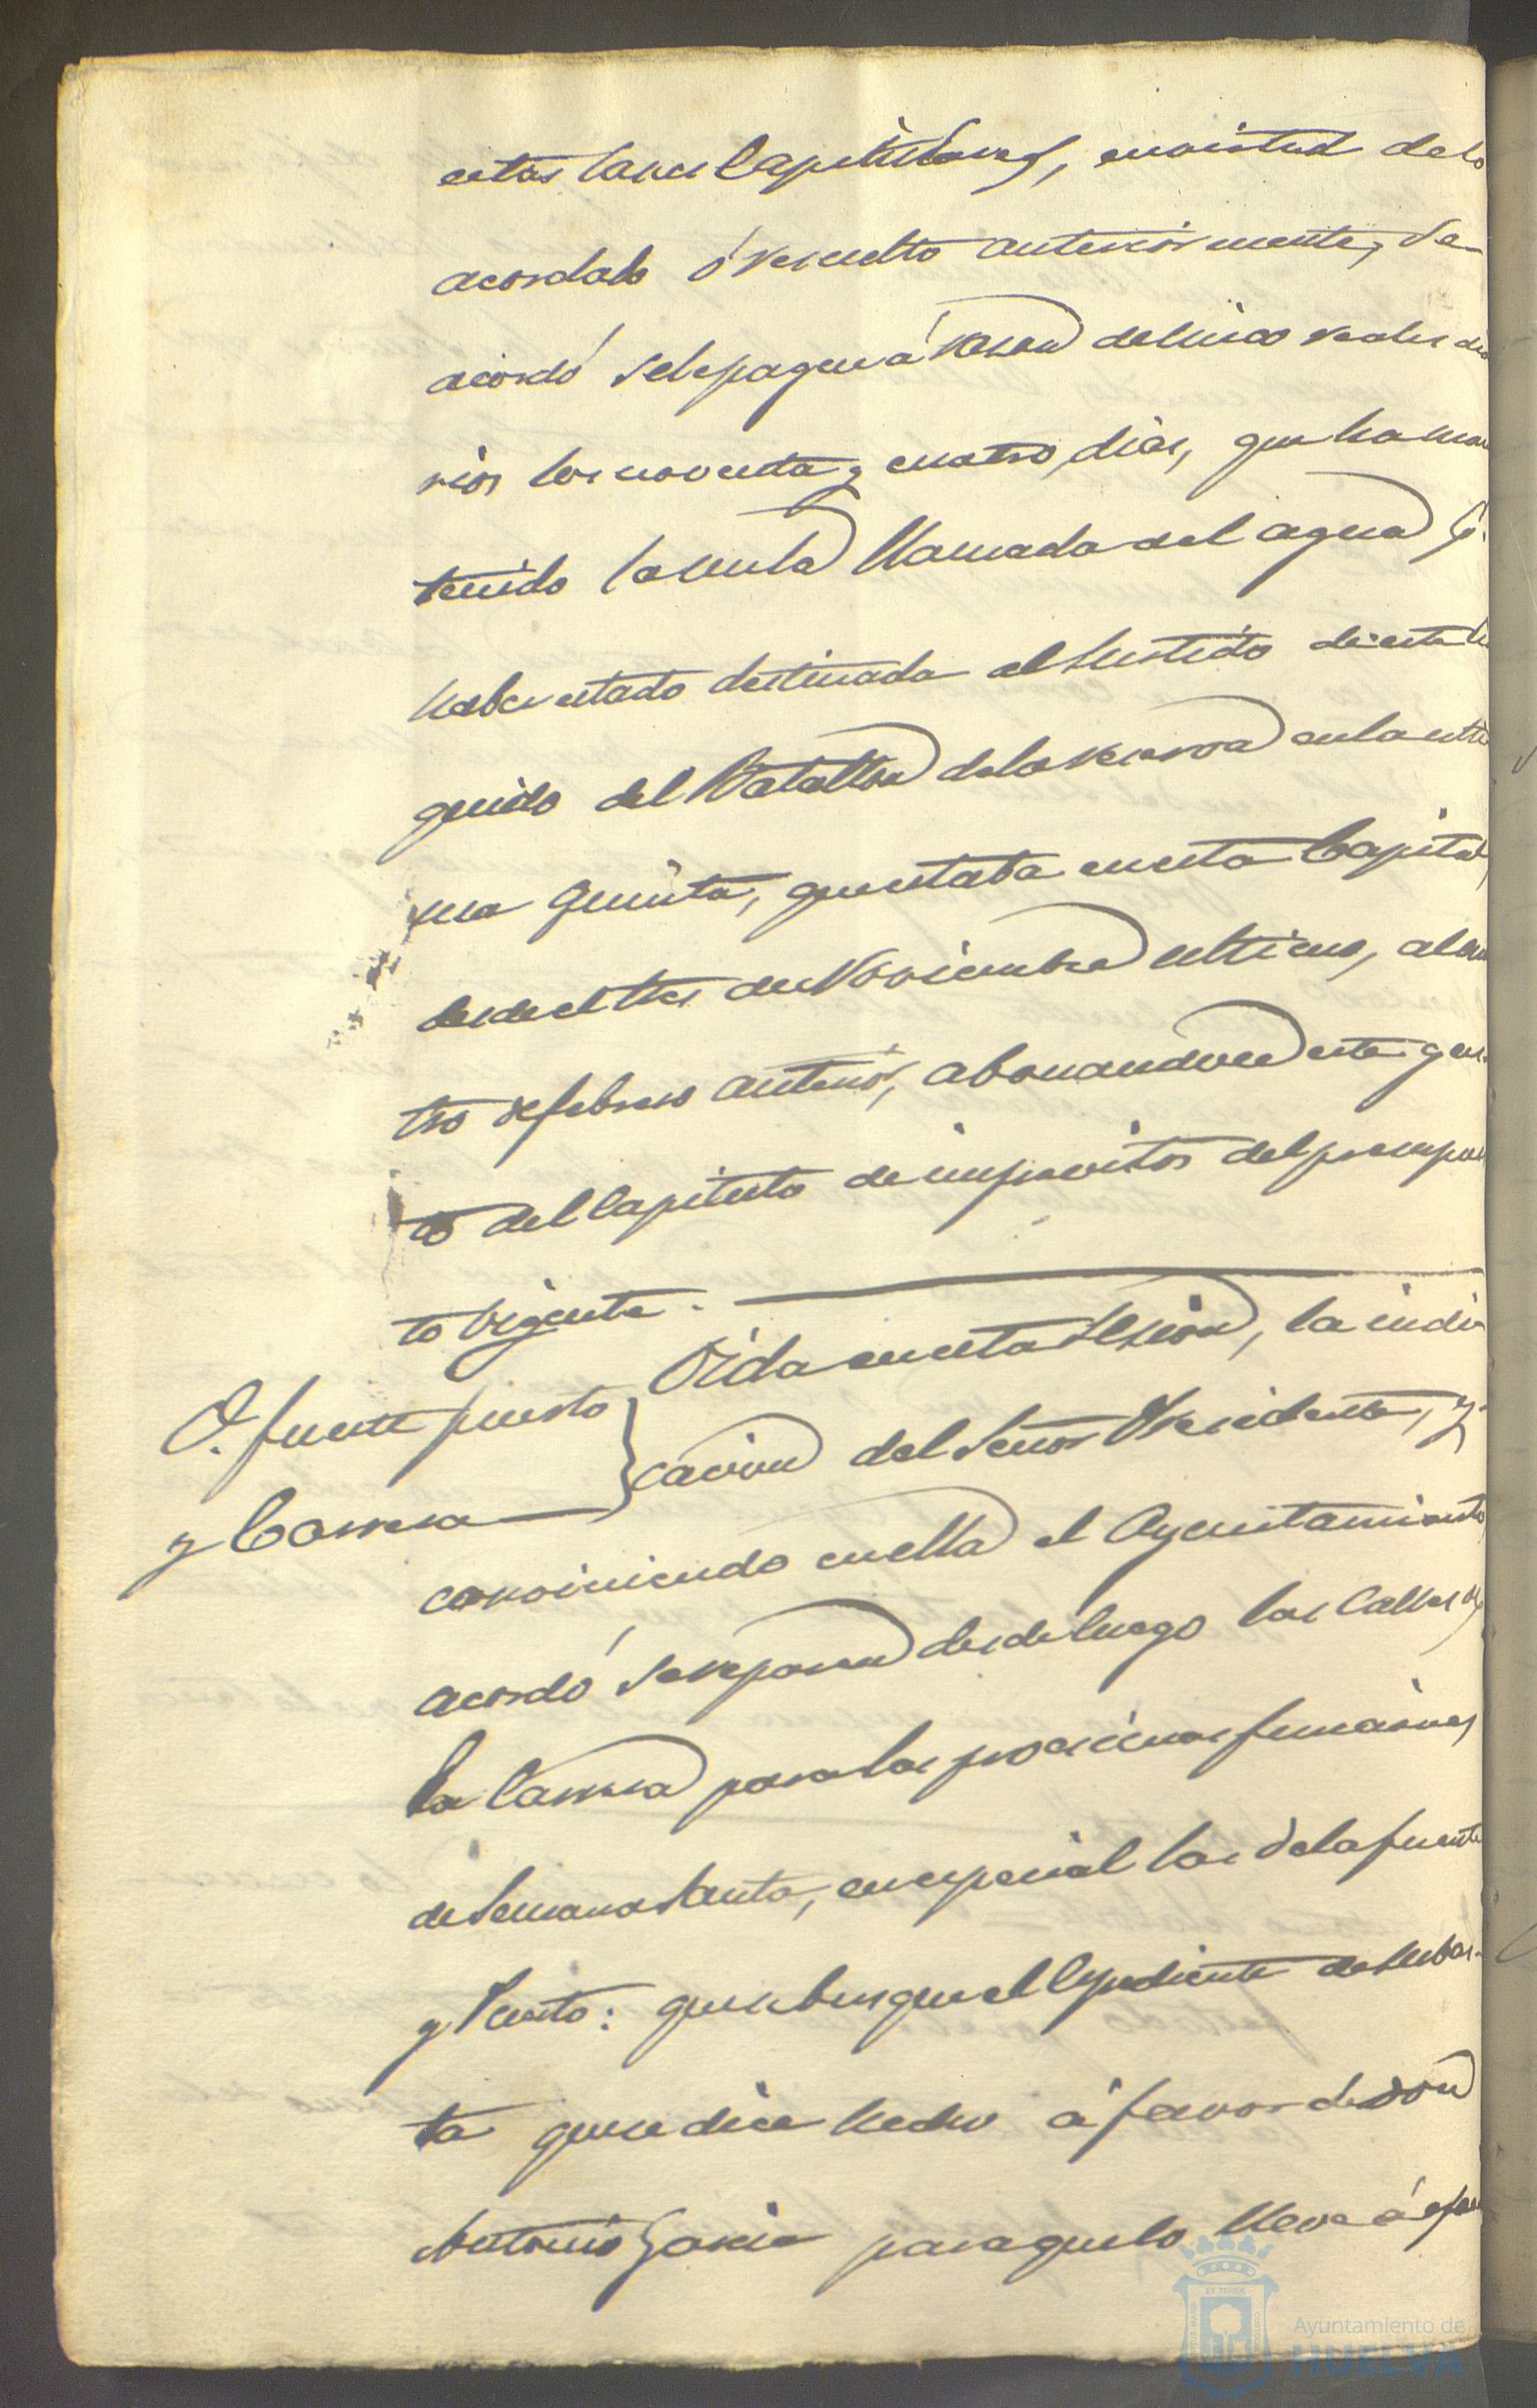 estas Casas Capitulares, en virtud de lo
acordado ó resuelto anteriormente, se
acordó se le pague á razon de cinco reales dia
rios los noventa y cuatro dias, que ha man
tenido la mula llamada del agua p.
haber estado destinada al surtido de esta
guido del Batallon de la reserva en la ulti
ma quinta, que estaba en esta Capital,
desde el tres de Noviembre ultimo, al cua
tro de febrero anterior, abonandose este gas
to del Capitulo de imprevistos del presupues
to vigente.
O. fuente puerto
y Carrera
Oida en esta sesion, la indi
cacion del Señor Presidente, y
conviniendo en ella el Ayuntamiento
acordó se reparen desde luego las Calles de
la Carrera para las procesiones
de Semana Santa, en especial las de la fuente
y Puerto: que se busque el Espediente de subas-
ta que se dice hecho á favor de Don
Antonio Garcia para que lo lleve á efec
Ayuntamiento de
HUELVA